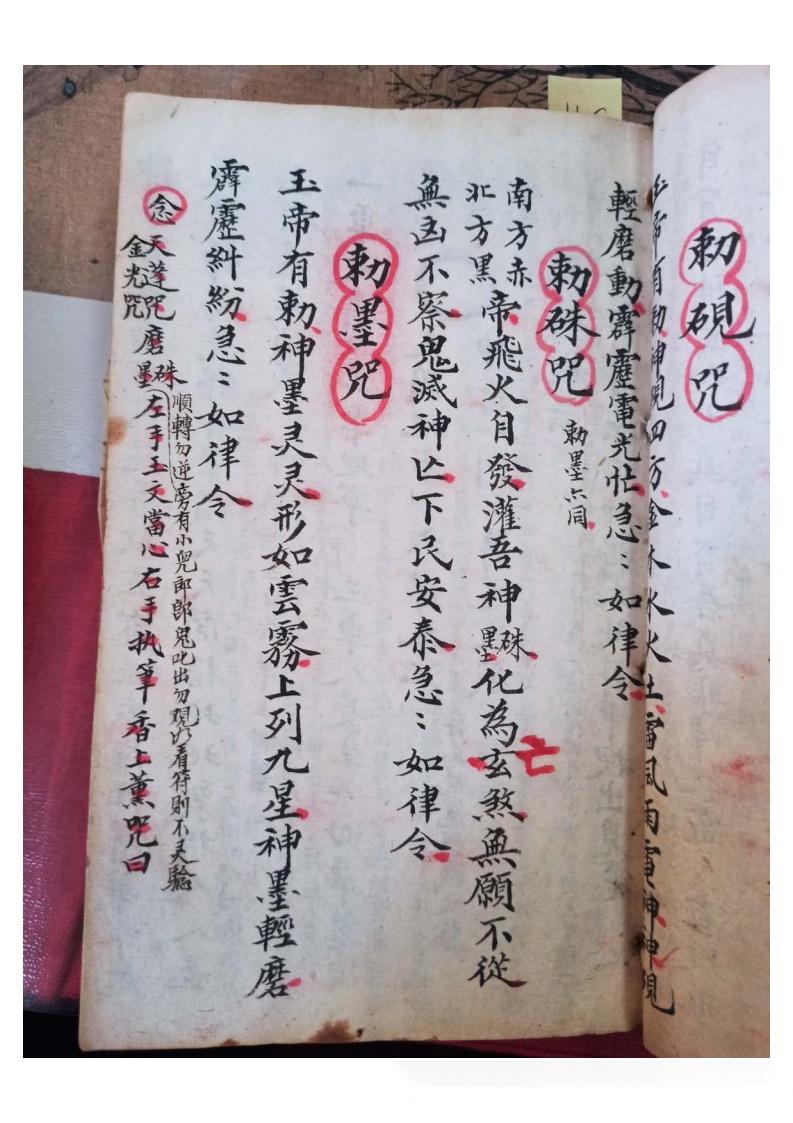 勅硯咒
玉帝有勅神硯四方金木水火土雷風雨電神硯
輕磨動霹靂電光忙急:如律令
勅硃咒 勅墨亦同
南方赤 北方黑 帝飛火自發灌吾神 硃 墨 化為玄 亡 煞無願不從
無凶不察鬼滅神亾下民安泰急:如律令
勅墨咒
玉帝有勅神墨灵灵形如雲霧上列九星神墨輕磨
霹靂糾紛急:如律令
念 天蓬咒 金光咒 磨 硃 墨 左手玉文當心右手执筆香上薰咒曰
順轉勿逆旁有小兒郎郎鬼叱出勿看符則不灵驗